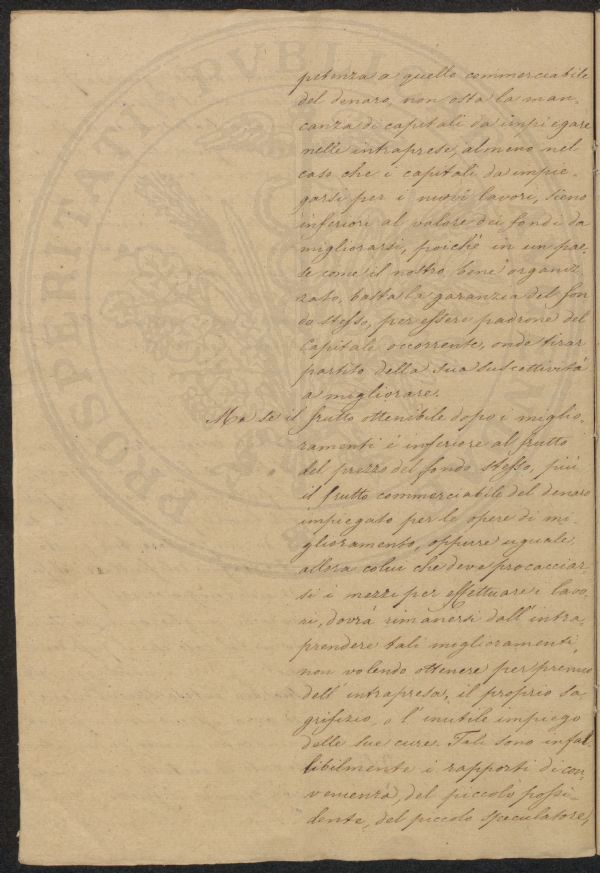 petenza a quello commerciabile
del denaro, non osta la man-
canza di capitali da impiegare
nelle intraprese, almeno nel
caso che i capitali da impie-
garsi per i nuovi lavori, sieno
inferiori al valore dei fondi da
migliorarsi, poichè in un pae-
se come il nostro, bene organiz-
zato, basta la garanzia del fon
do stesso, per essere padrone del
Capitale occorrente, onde tirar
partito della sua suscettività
a migliorare.
Ma se il frutto ottenibile dopo i miglio-
ramenti è inferiore al frutto
del prezzo del fondo stesso, più
il frutto commerciabile del denaro
impiegato per le opere di mi-
glioramento, oppure uguale
allora colui che deve procacciar-
si i mezzi per effettuare i lavo-
ri, dovrà rimanersi dall'intra-
prendere tali miglioramenti,
non volendo ottenere per premio
dell'intrapresa, il proprio sa-
grifizio, o l'inutile impiego
delle sue cure. Tali sono infal-
libilmente i rapporti di con-
venienza, del piccolo possi-
dente, del piccolo speculatore,
PROSPERITATI PVBLIC